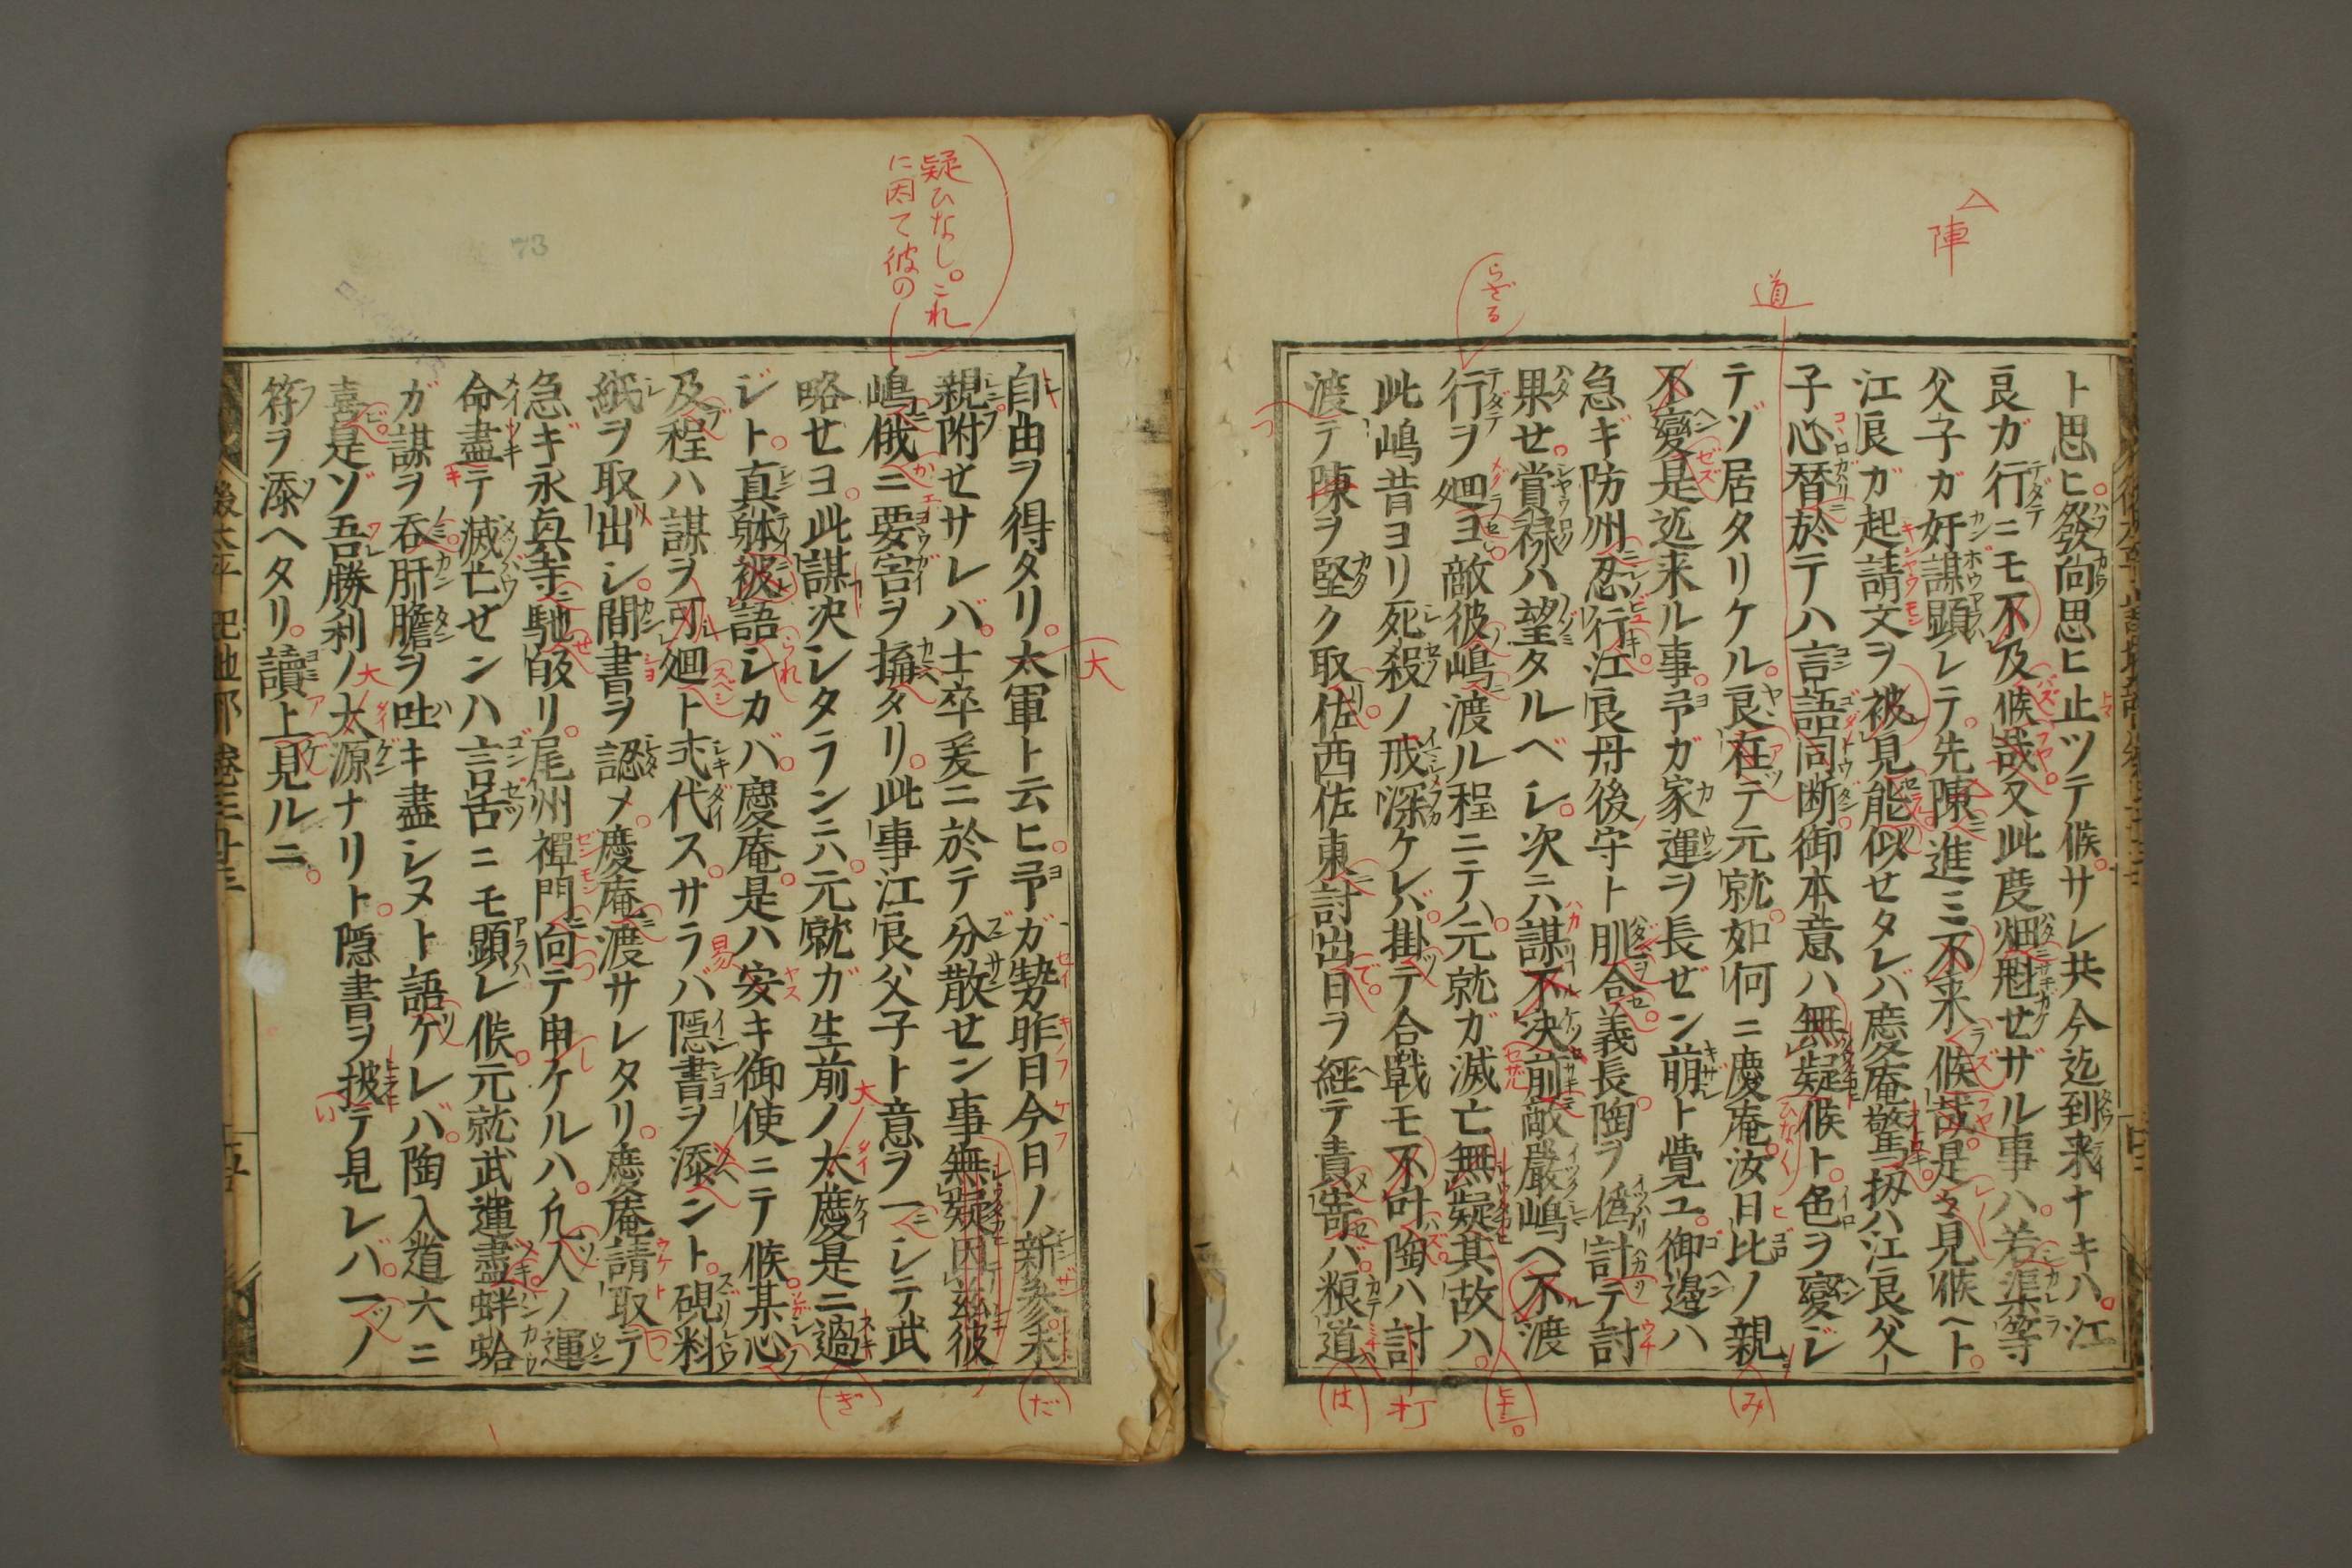 ト思ヒ發向思ヒ止ツテ候サレ共今迄到来ナキハ江
良ガ行ニモ不及候哉又此度畑魁せザル事ハ若渠等
父子ガ奸謀顕レテ先陳進ミ不来候哉是々見候ヘト
江良ガ起請文ヲ被見能似せタレバ慶庵驚扨ハ江良父
子心替於テハ言語同断御本意ハ無疑候ト色ヲ變ジ
テゾ居タリケル良在テ元就如何ニ慶庵汝日比ノ親
不變是迄来ル事予ガ家運ヲ長ぜン萌ト覚ユ御邉ハ
急ギ防州忍行江良丹後守ト肌合義長陶ヲ偽計テ討
果せ賞禄ハ望タルベシ次ニハ謀不決前敵嚴嶋ヘ不渡
行ヲ廻ヨ敵彼嶋渡ル程ニテハ元就ガ滅亡無疑其故ハ
此嶋昔ヨリ死殺ノ戒深ケレバ掛テ合戦モ不叶陶ハ討
渡テ陳ヲ堅ク取佐西佐東討出日ヲ経テ責寄バ粮道
陣
道
らざる
み
打
は
自由ヲ得タリ太軍ト云ヒ予ガ勢昨日今日ノ新参未
親附せサレバ士卒爰ニ於テ分散せン事無疑因茲彼
嶋俄ニ要害ヲ搆タリ此事江良父子ト意ヲ一ニシテ武
略せヨ此謀决シタランニハ元就ガ生前ノ太慶是ニ過
ジト真躰被語シカバ慶庵是ハ安キ御使ニテ候某心
及程ハ謀ヲ可廻ト弍代スサラバ隠書ヲ添ント硯料
紙ヲ取出シ間書ヲ認メ慶庵渡サレタリ慶庵請取テ
急ギ永奥寺馳皈リ尾州禪門向テ申ケルハ凢人ノ運
命盡テ滅亡せンハ言舌ニモ顕レ候元就武運盡蚌蛤
ガ謀ヲ呑肝膽ヲ吐キ盡シヌト語ケレバ陶入道大ニ
喜是ゾ吾勝利ノ太源ナリト隠書ヲ披テ見レバ一ノ
符ヲ添ヘタリ讀上見ルニ
疑ひなし。これ
に因て彼の
大
だ
ぎ
73